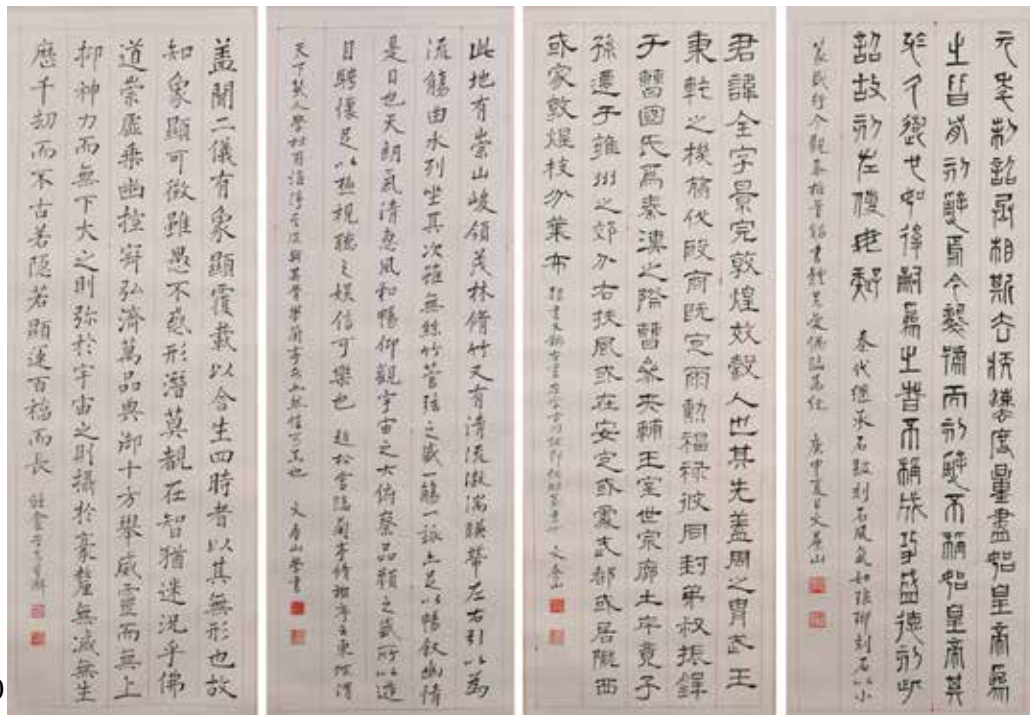 元年制詔丞相斯去疾法度量盡始皇帝為
之皆有刻辭焉今襲號而刻辭不稱始皇帝其
於久遠也如後嗣為之者不稱成功盛德刻此
詔故刻左使毋疑 秦代继承石鼓刻石風氣如琅琊刻石以小
篆 文屏山
君諱全字景完敦煌效穀人也其先蓋周之胄武王
秉乾之機翦伐殷商既定爾勳福祿彼同封弟叔振鐸
于曹國氏焉秦漢之際曹參夾輔王室世宗廓土斥竟子
孫遷于雍州之郊分右扶風或在安定或處武都或居隴西
或家敦煌枝分葉布 文屏山
此地有崇山峻領茂林脩竹又有清流激湍暎帶左右引以為
流觴曲水列坐其次雖無絲竹管弦之盛一觴一詠亦足以暢叙幽情
是日也天朗氣清惠風和暢仰觀宇宙之大俯察品類之盛所以遊
目騁懷足以極視聽之娛信可樂也 趙松雪臨蘭亭修禊序云東坡謂
天下英人學杜甫 文屏山學書
盖聞二儀有象顯覆載以含生四時者以其無形也故
知象顯可徵雖愚不惑形潛莫覩在智猶迷況乎佛
道崇虛乘幽控寂弘濟萬品典御十方舉威靈而無上
抑神力而無下大之則彌於宇宙之則攝於豪釐無滅無生
歷千劫而不古若隱若顯運百福而長